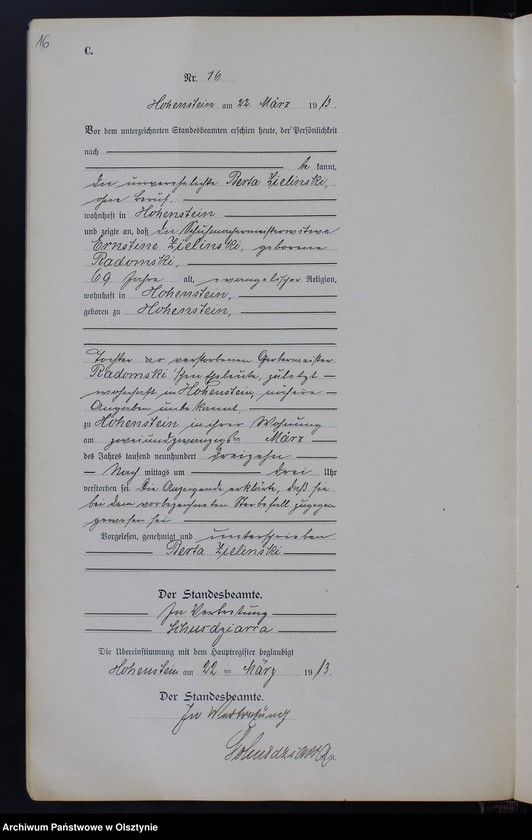 16
C.
Nr. 16
Hohenstein am 22 März 1913.
Vor dem unterzeichneten Standesbeamten erschien heute, der Persönlichkeit
nach
be kannt,
die unverehelichte Berta Zielinski,
ohne Beruf.
wohnhaft in Hohenstein
und zeigte an, daß die Schuhmachermeisterwitwe
Ernstine Zielinski, geborene
Radomski,
69 Jahre alt, evangelischer Religion,
wohnhaft in Hohenstein,
geboren zu Hohenstein,
Tochter der verstorbenen Gerbermeister
Radomski'schen Eheleute, zuletzt
wohnhaft in Hohenstein, nähere
Angaben unbekannt,
zu Hohenstein in ihrer Wohnung
am zweiundzwanzigsten März
des Jahres tausend neunhundert dreizehn
Nach mittags um drei Uhr
verstorben sei. Die Anzeigende erklärte, daß sie
bei dem vorbezeichneten Sterbefall zugegen
gewesen sei
Vorgelesen, genehmigt und unterschrieben
Berta Zielinski
Der Standesbeamte.
In Vertretung
Die Übereinstimmung mit dem Hauptregister beglaubigt
Hohenstein am 22 ten März 1913.
Der Standesbeamte.
In Vertretung
Archiwum Państwowe w Olsztynie